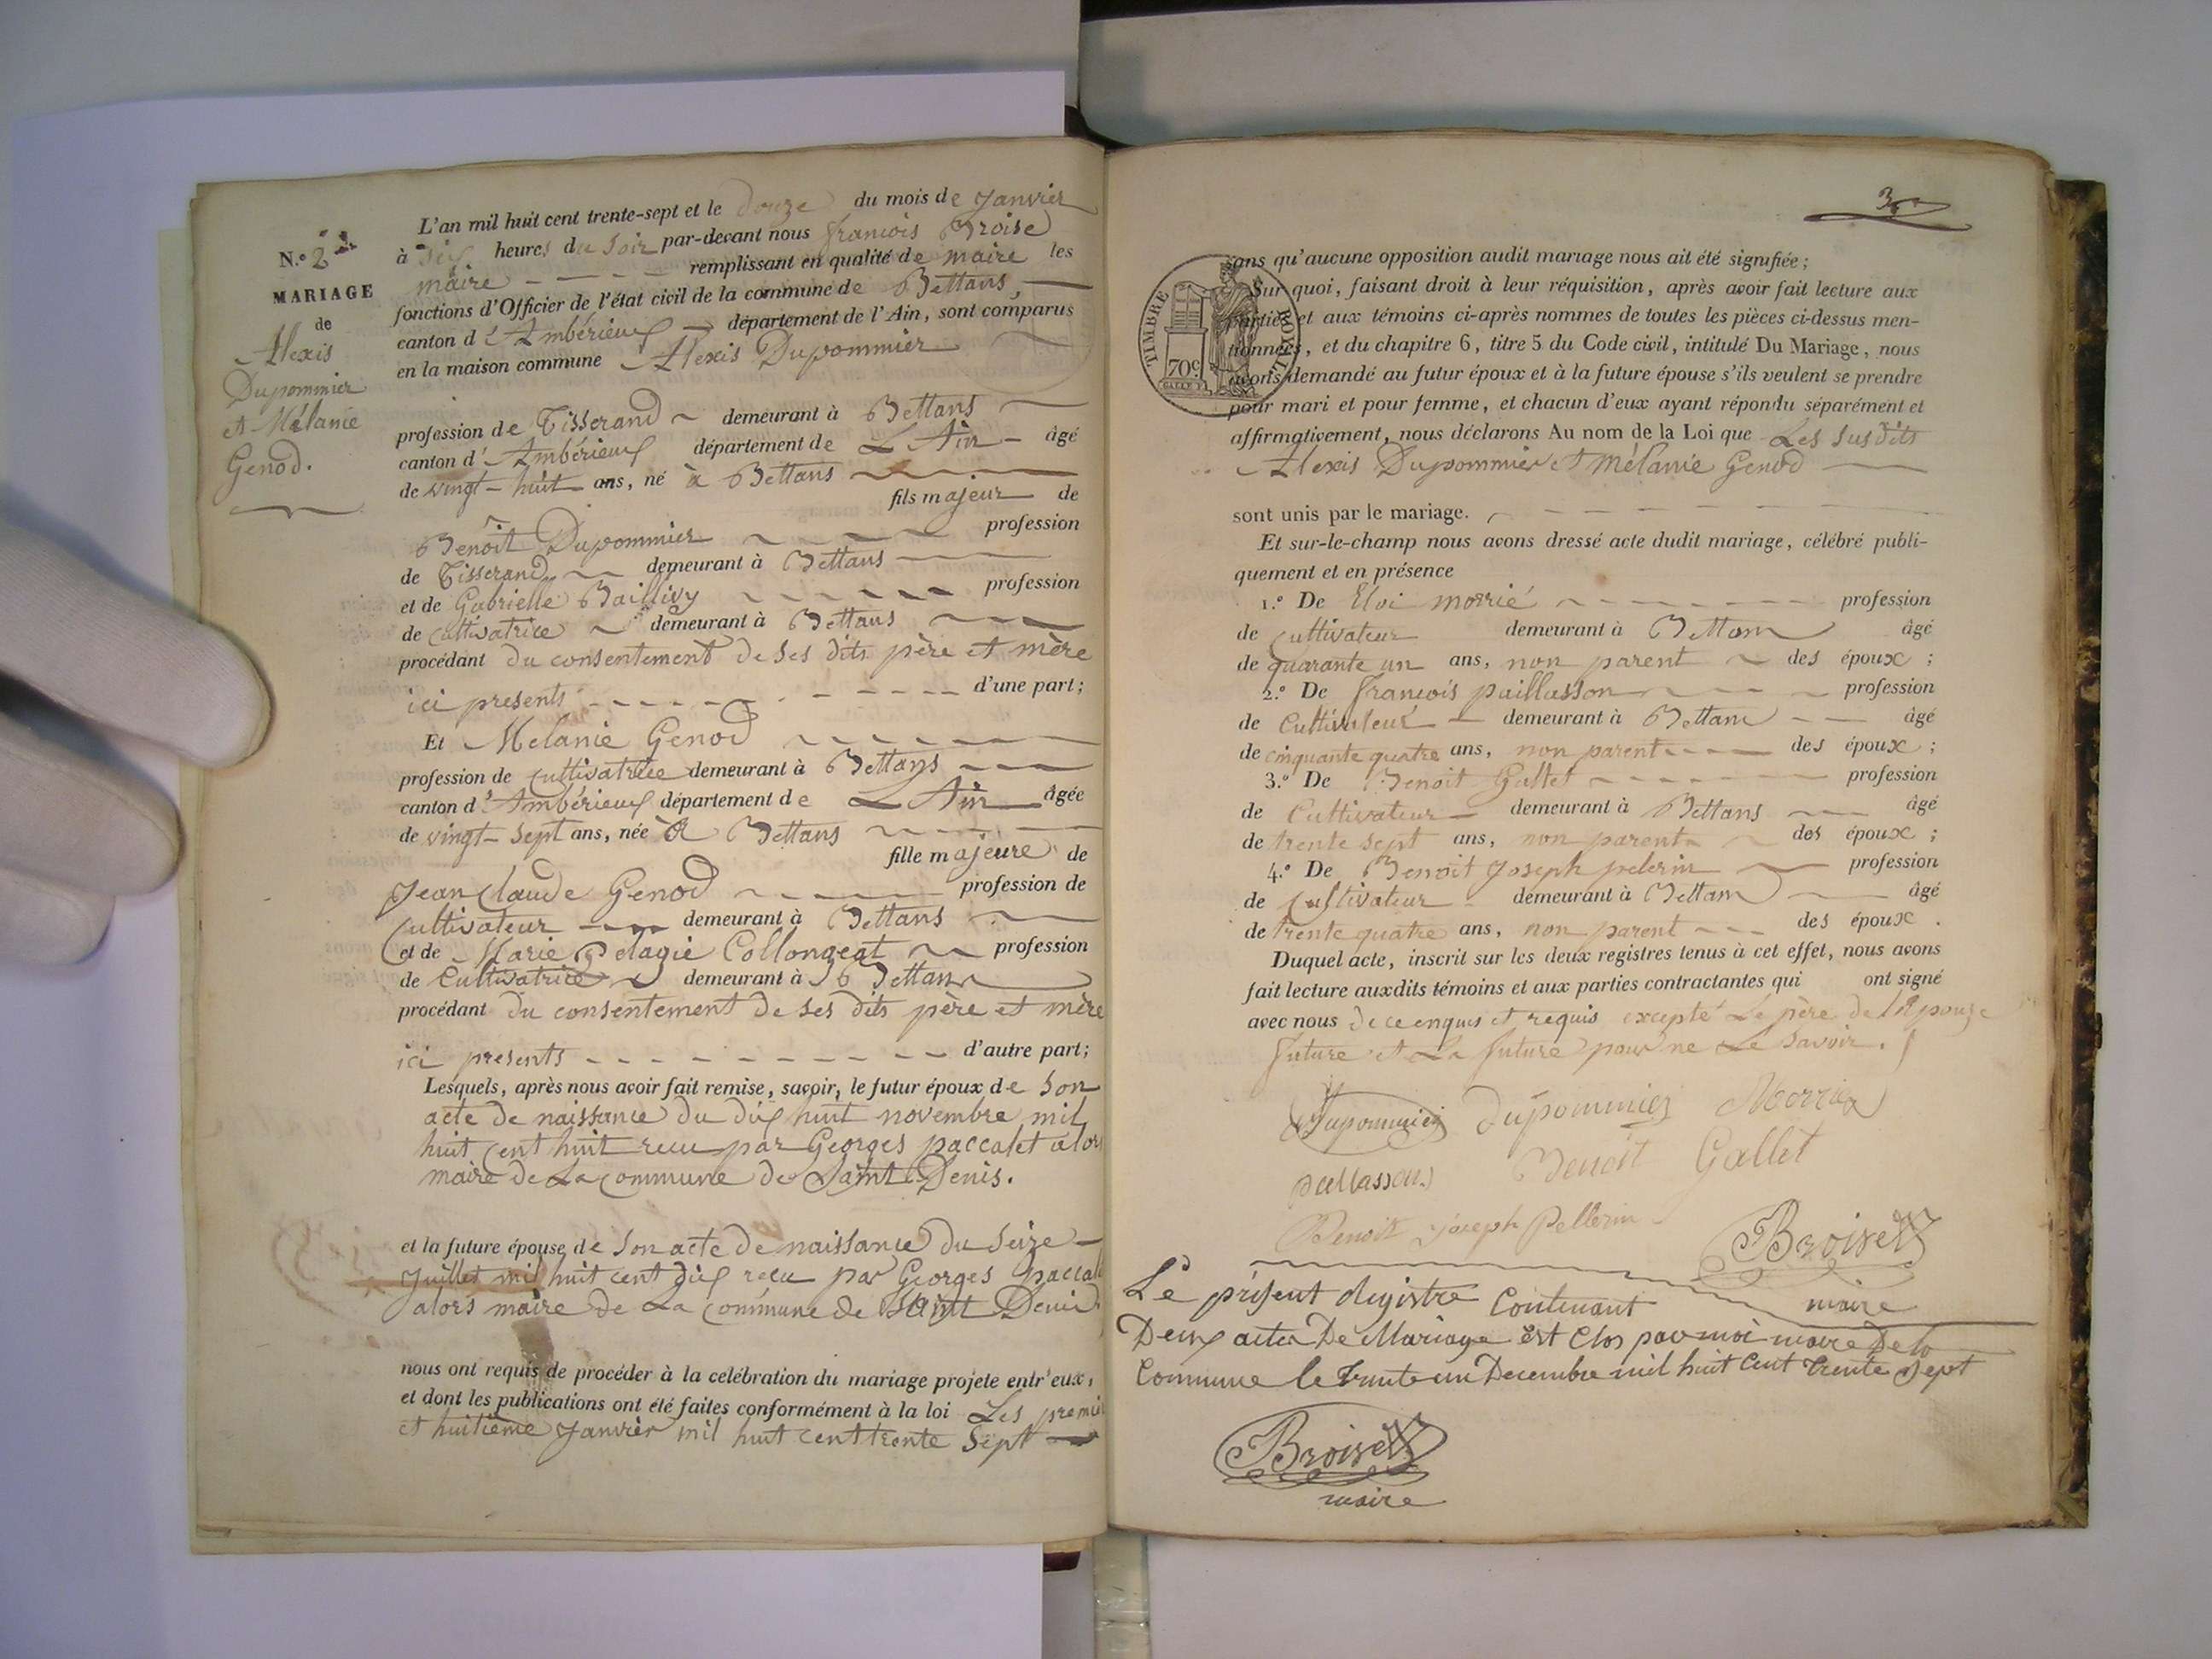 N.º 2
MARIAGE
de
Alexis
Dupommier
et Mélanie
Genod.
L'an mil huit cent trente-sept et le douze du mois de Janvier
à six heures du soir par-devant nous francois Broise
maire remplissant en qualité de maire les
fonctions d'Officier de l'état civil de la commune de Bettans,
canton d'Ambérieux département de l'Ain, sont comparus
en la maison commune Alexis Dupommier
profession de Tisserand demeurant à Bettans
canton d'Ambérieux département de L'Ain âgé
de vingt-huit ans, né à Bettans
fils majeur de
Benoît Dupommier profession
de Tisserand demeurant à Bettans
et de Gabrielle Baillivy profession
de cultivatrice demeurant à Bettans
procédant du consentement de ses dits père et mère
ici presents d'une part;
Et Mélanie Genod
profession de cultivatrice demeurant à Bettans
canton d'Ambérieux département de L'Ain âgée
de vingt-sept ans, née à Bettans
fille majeure de
Jean Claude Genod profession de
Cultivateur demeurant à Bettans
et de Marie Pelagie Collongeat profession
de Cultivatrice demeurant à Bettans
procédant du consentement de ses dits père et mère
ici presents d'autre part;
Lesquels, après nous avoir fait remise, savoir, le futur époux de son
acte de naissance du dix huit novembre mil
huit cent huit recu par Georges paccalet alors
maire de La commune de Saint Denis.
et la future épouse de son acte de naissance du seize
Juillet mil huit cent dix recu par Georges paccal
alors maire de La commune de Saint Denis
nous ont requis de procéder à la celébration du mariage projete entr'eux,
et dont les publications ont été faites conformément à la loi Les premier
et huitième Janvier mil huit cent trente sept
3
TIMBRE ROYAL
70c
sans qu'aucune opposition audit mariage nous ait été signifiée;
Sur quoi, faisant droit à leur réquisition, après avoir fait lecture aux
parties et aux témoins ci-après nommes de toutes les pièces ci-dessus men-
tionnées, et du chapitre 6, titre 5 du Code civil, intitulé Du Mariage, nous
avons demandé au futur époux et à la future épouse s'ils veulent se prendre
pour mari et pour femme, et chacun d'eux ayant répondu séparément et
affirmativement, nous déclarons Au nom de la Loi que Les susdits
Alexis Dupommier et Mélanie Genod
sont unis par le mariage.
Et sur-le-champ nous avons dressé acte dudit mariage, célébré publi-
quement et en présence
1.º De Eloi morrié profession
de cultivateur demeurant à Bettans âgé
de quarante un ans, non parent des époux;
2.º De francois paillasson profession
de Cultivateur demeurant à Bettans âgé
de cinquante quatre ans, non parent des époux;
3.º De Benoit Gallet profession
de Cultivateur demeurant à Bettans âgé
de trente sept ans, non parent des époux;
4.º De Benoit Joseph pelerin profession
de Cultivateur demeurant à Bettans âgé
de trente quatre ans, non parent des époux.
Duquel acte, inscrit sur les deux registres tenus à cet effet, nous avons
fait lecture auxdits témoins et aux parties contractantes qui ont signé
avec nous de ce enquis et requis excepté Le père de l'épouse
future et La future pour ne Le Savoir.
Dupommier Dupommier Morrier
paillasson Benoit Gallet
Benoit Joseph Pellerin
Broise
maire
Le présent Registre Contenant
Deux actes De Mariage est Clos par moi maire De la
Commune le trente un Decembre mil huit Cent trente Sept
Broise
maire